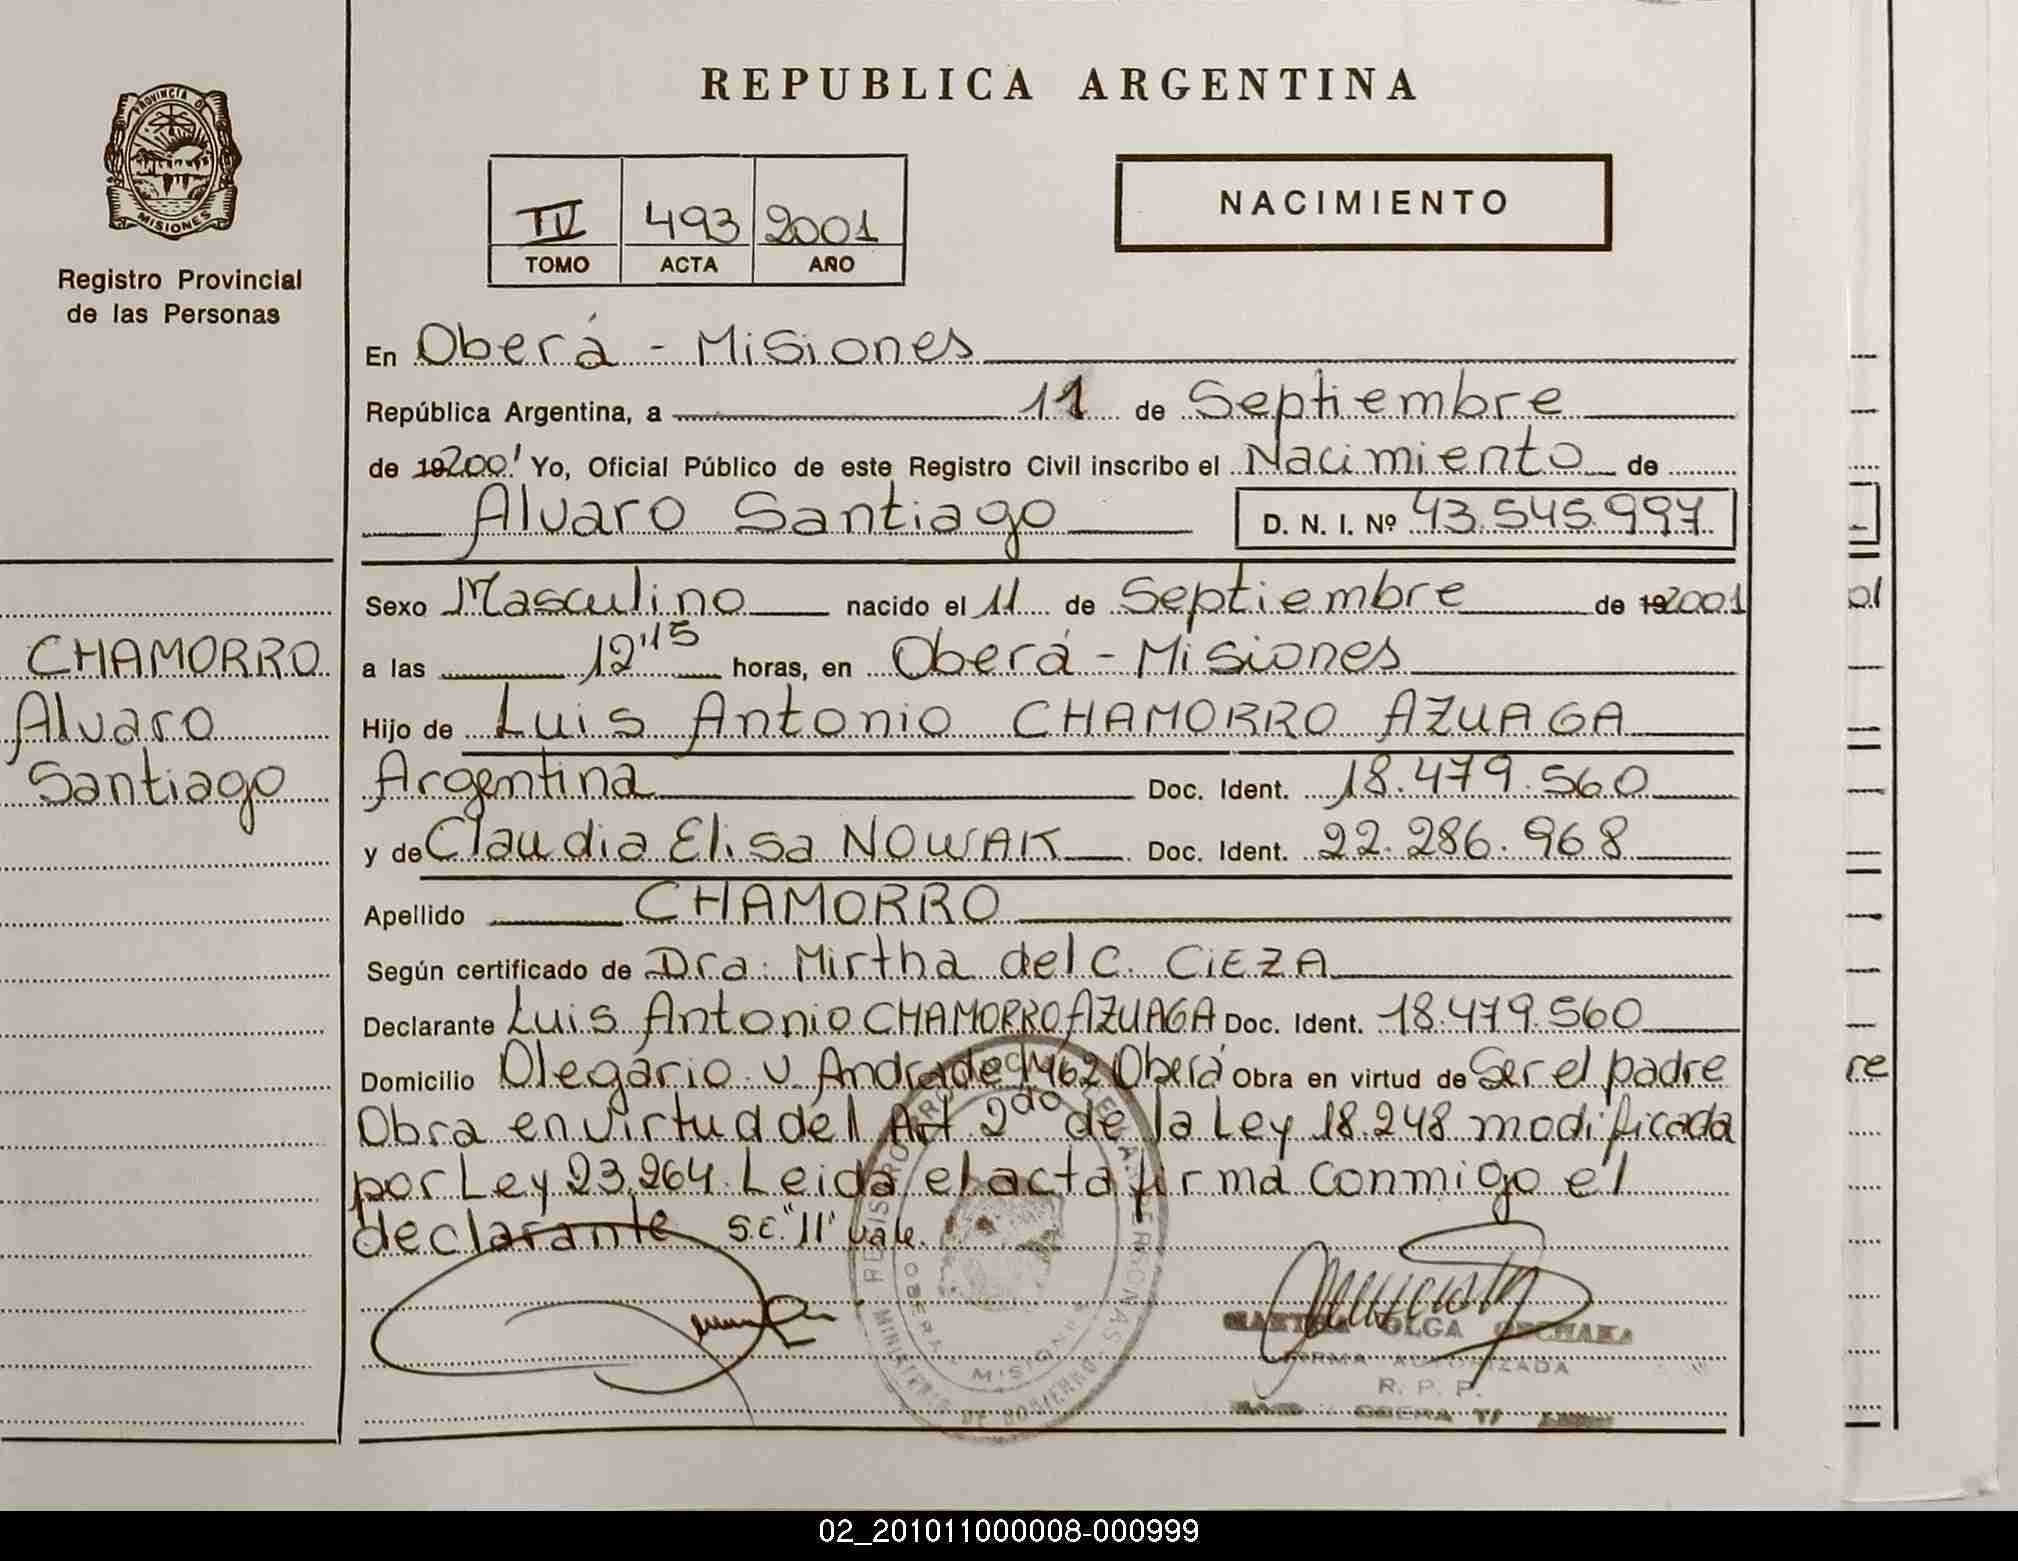 REPUBLICA ARGENTINA
PROVINCIA DE
MISIONES
Registro Provincial
de las Personas
IV 493 2001
TOMO ACTA AÑO
NACIMIENTO
En Oberá - Misiones
República Argentina, a 11 de Septiembre
de 19 2001 Yo, Oficial Público de este Registro Civil inscribo el Nacimiento de
Alvaro Santiago D. N. I. Nº 43.545.997
Sexo Masculino nacido el 11 de Septiembre de 19 2001
a las 12'15 horas, en Oberá - Misiones
Hijo de Luis Antonio CHAMORRO AZUAGA
Argentina Doc. Ident. 18.479.560
y de Claudia Elisa NOWAK Doc. Ident. 22.286.968
Apellido CHAMORRO
Según certificado de Dra: Mirtha del C. CIEZA
Declarante Luis Antonio CHAMORRO AZUAGA Doc. Ident. 18.479.560
Domicilio Olegario V. Andrade 1462 Oberá Obra en virtud de Ser el padre
Obra en virtud del Art 2do de la Ley 18.248 modificada
por Ley 23.264. Leida el acta firma conmigo el
declarante S.C. "11" vale.
CHAMORRO
Alvaro
Santiago
OLGA
FIRMA AUTORIZADA
R. P. P.
MINISTERIO DE GOBIERNO
OBERA - MISIONES
01
re
02_201011000008-000999